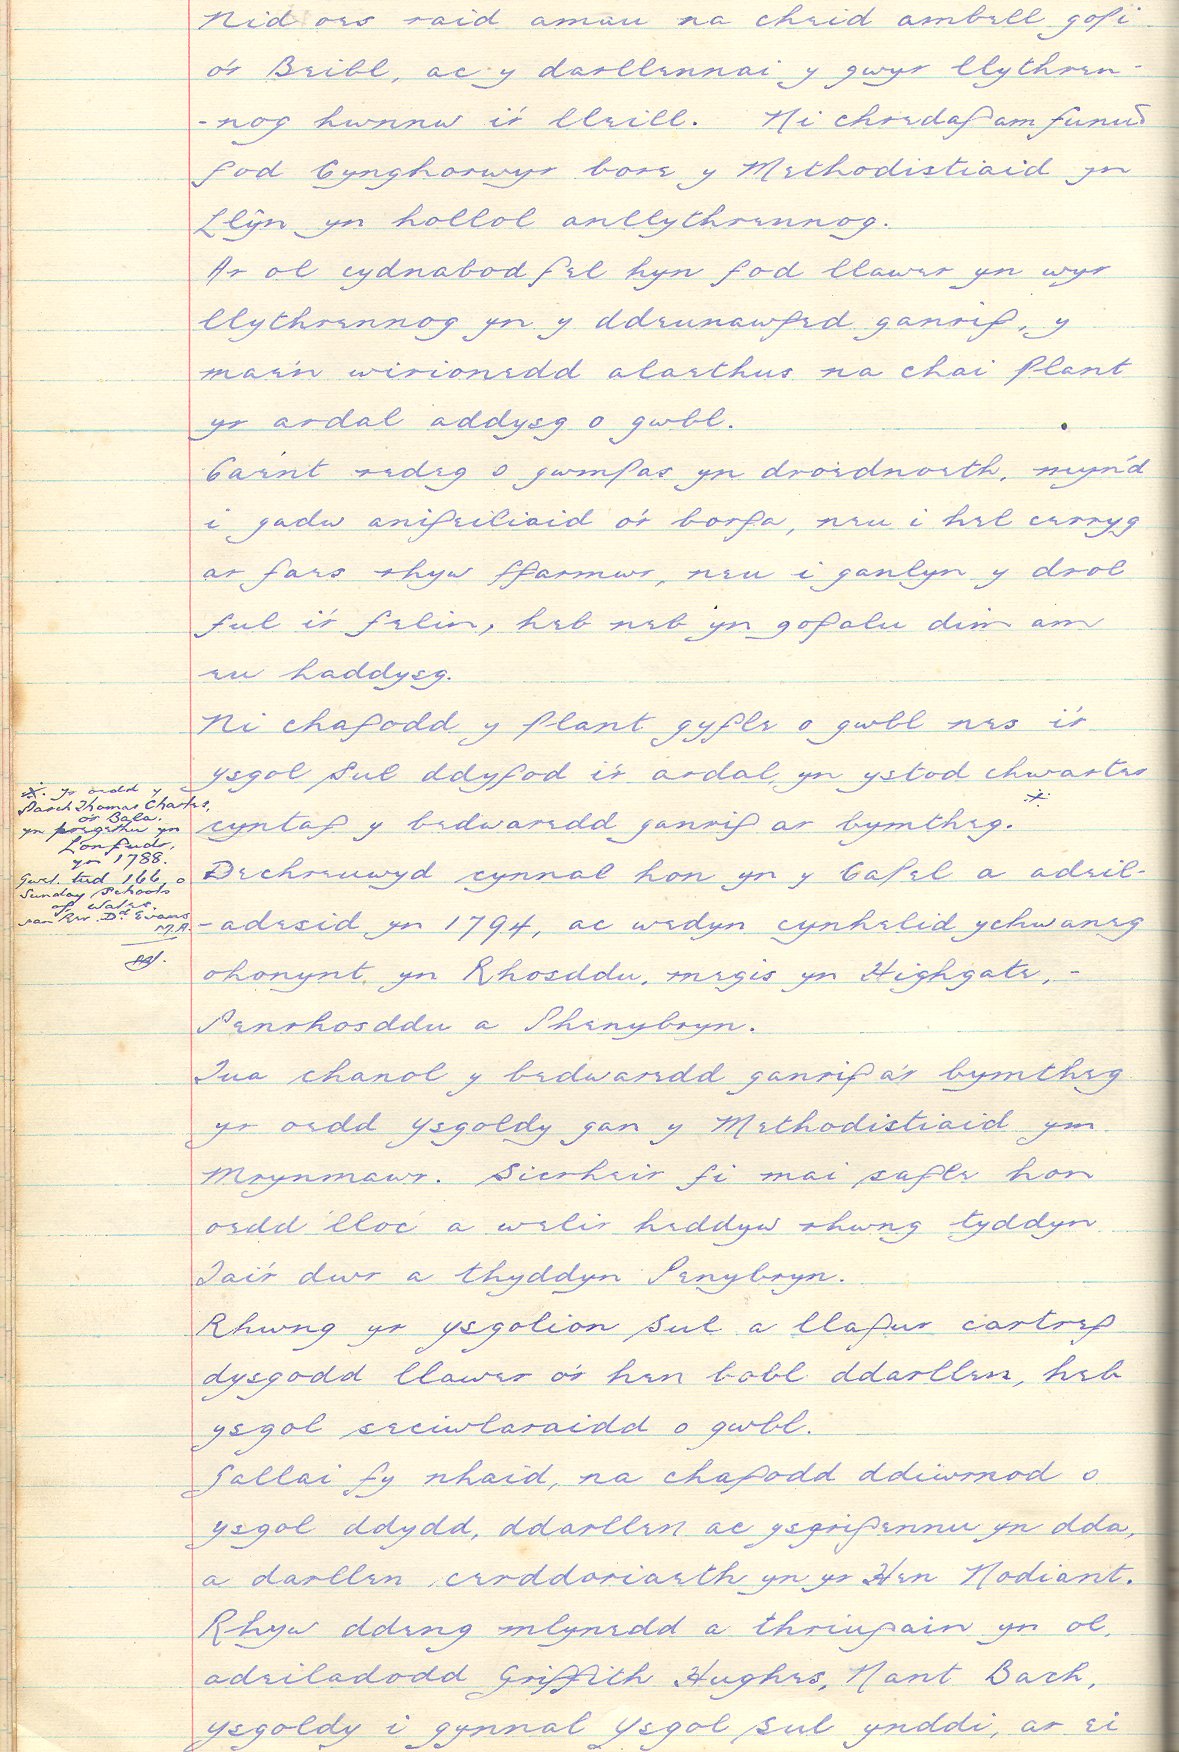 Nid oes raid amau na cheid ambell gopi
o'r Beibl, ac y darllennai y gwyr llythren-
-nog hwnnw i'r lleill. Ni chredaf am funud
fod Cynghorwyr bore y Methodistiaid yn
Llŷn yn hollol anllythrennog.
Ar ol cydnabod fel hyn fod llawer yn wyr
llythrennog yn y ddeunawfed ganrif, y
mae'n wirionedd alaethus na chai plant
yr ardal addysg o gwbl.
Cae'nt redeg o gwmpas yn droednoeth, myn'd
i gadw anifeiliaid o'r borfa, neu i hel cerryg
ar faes rhyw ffarmwr, neu i ganlyn y drol
ful i'r felin, heb neb yn gofalu dim am
eu haddysg.
Ni chafodd y plant gyfle o gwbl nes i'r
ysgol Sul ddyfod i'r ardal yn ystod chwarter
cyntaf y bedwaredd ganrif ar bymtheg.
Dechreuwyd cynnal hon yn y Capel a adeil-
-adesid yn 1794, ac wedyn cynhelid ychwaneg
ohonynt yn Rhosddu, megis yn Highgate, -
Penrhosddu a Phenybryn.
Tua chanol y bedwaredd ganrif a'r bymtheg
yr oedd Ysgoldy gan y Methodistiaid ym
Mrynmawr. Sicrheir fi mai safle hon
oedd 'lloc' a welir heddyw rhwng tyddyn
Tai'r dwr a thyddyn Penybryn.
Rhwng yr ysgolion Sul a llafur cartref
dysgodd llawer o'r hen bobl ddarllen, heb
ysgol seciwlaraidd o gwbl.
Gallai fy nhaid, na chafodd ddiwrnod o
ysgol ddydd, ddarllen ac ysgrifennu yn dda,
a darllen cerddoriaeth yn yr Hen Nodiant.
Rhyw ddeng mlynedd a thriugain yn ol,
adeiladodd Griffith Hughes, Nant Bach,
Ysgoldy i gynnal Ysgol Sul ynddi, ar ei
*. Yr oedd y
Parch Thomas Charles,
o'r Bala.
yn pregethu yn
Lonfudr,
yn 1788.
Gwel. tud 166 o
Sunday Schools
of Wales.
gan Rev. Dd Evans
M.A.